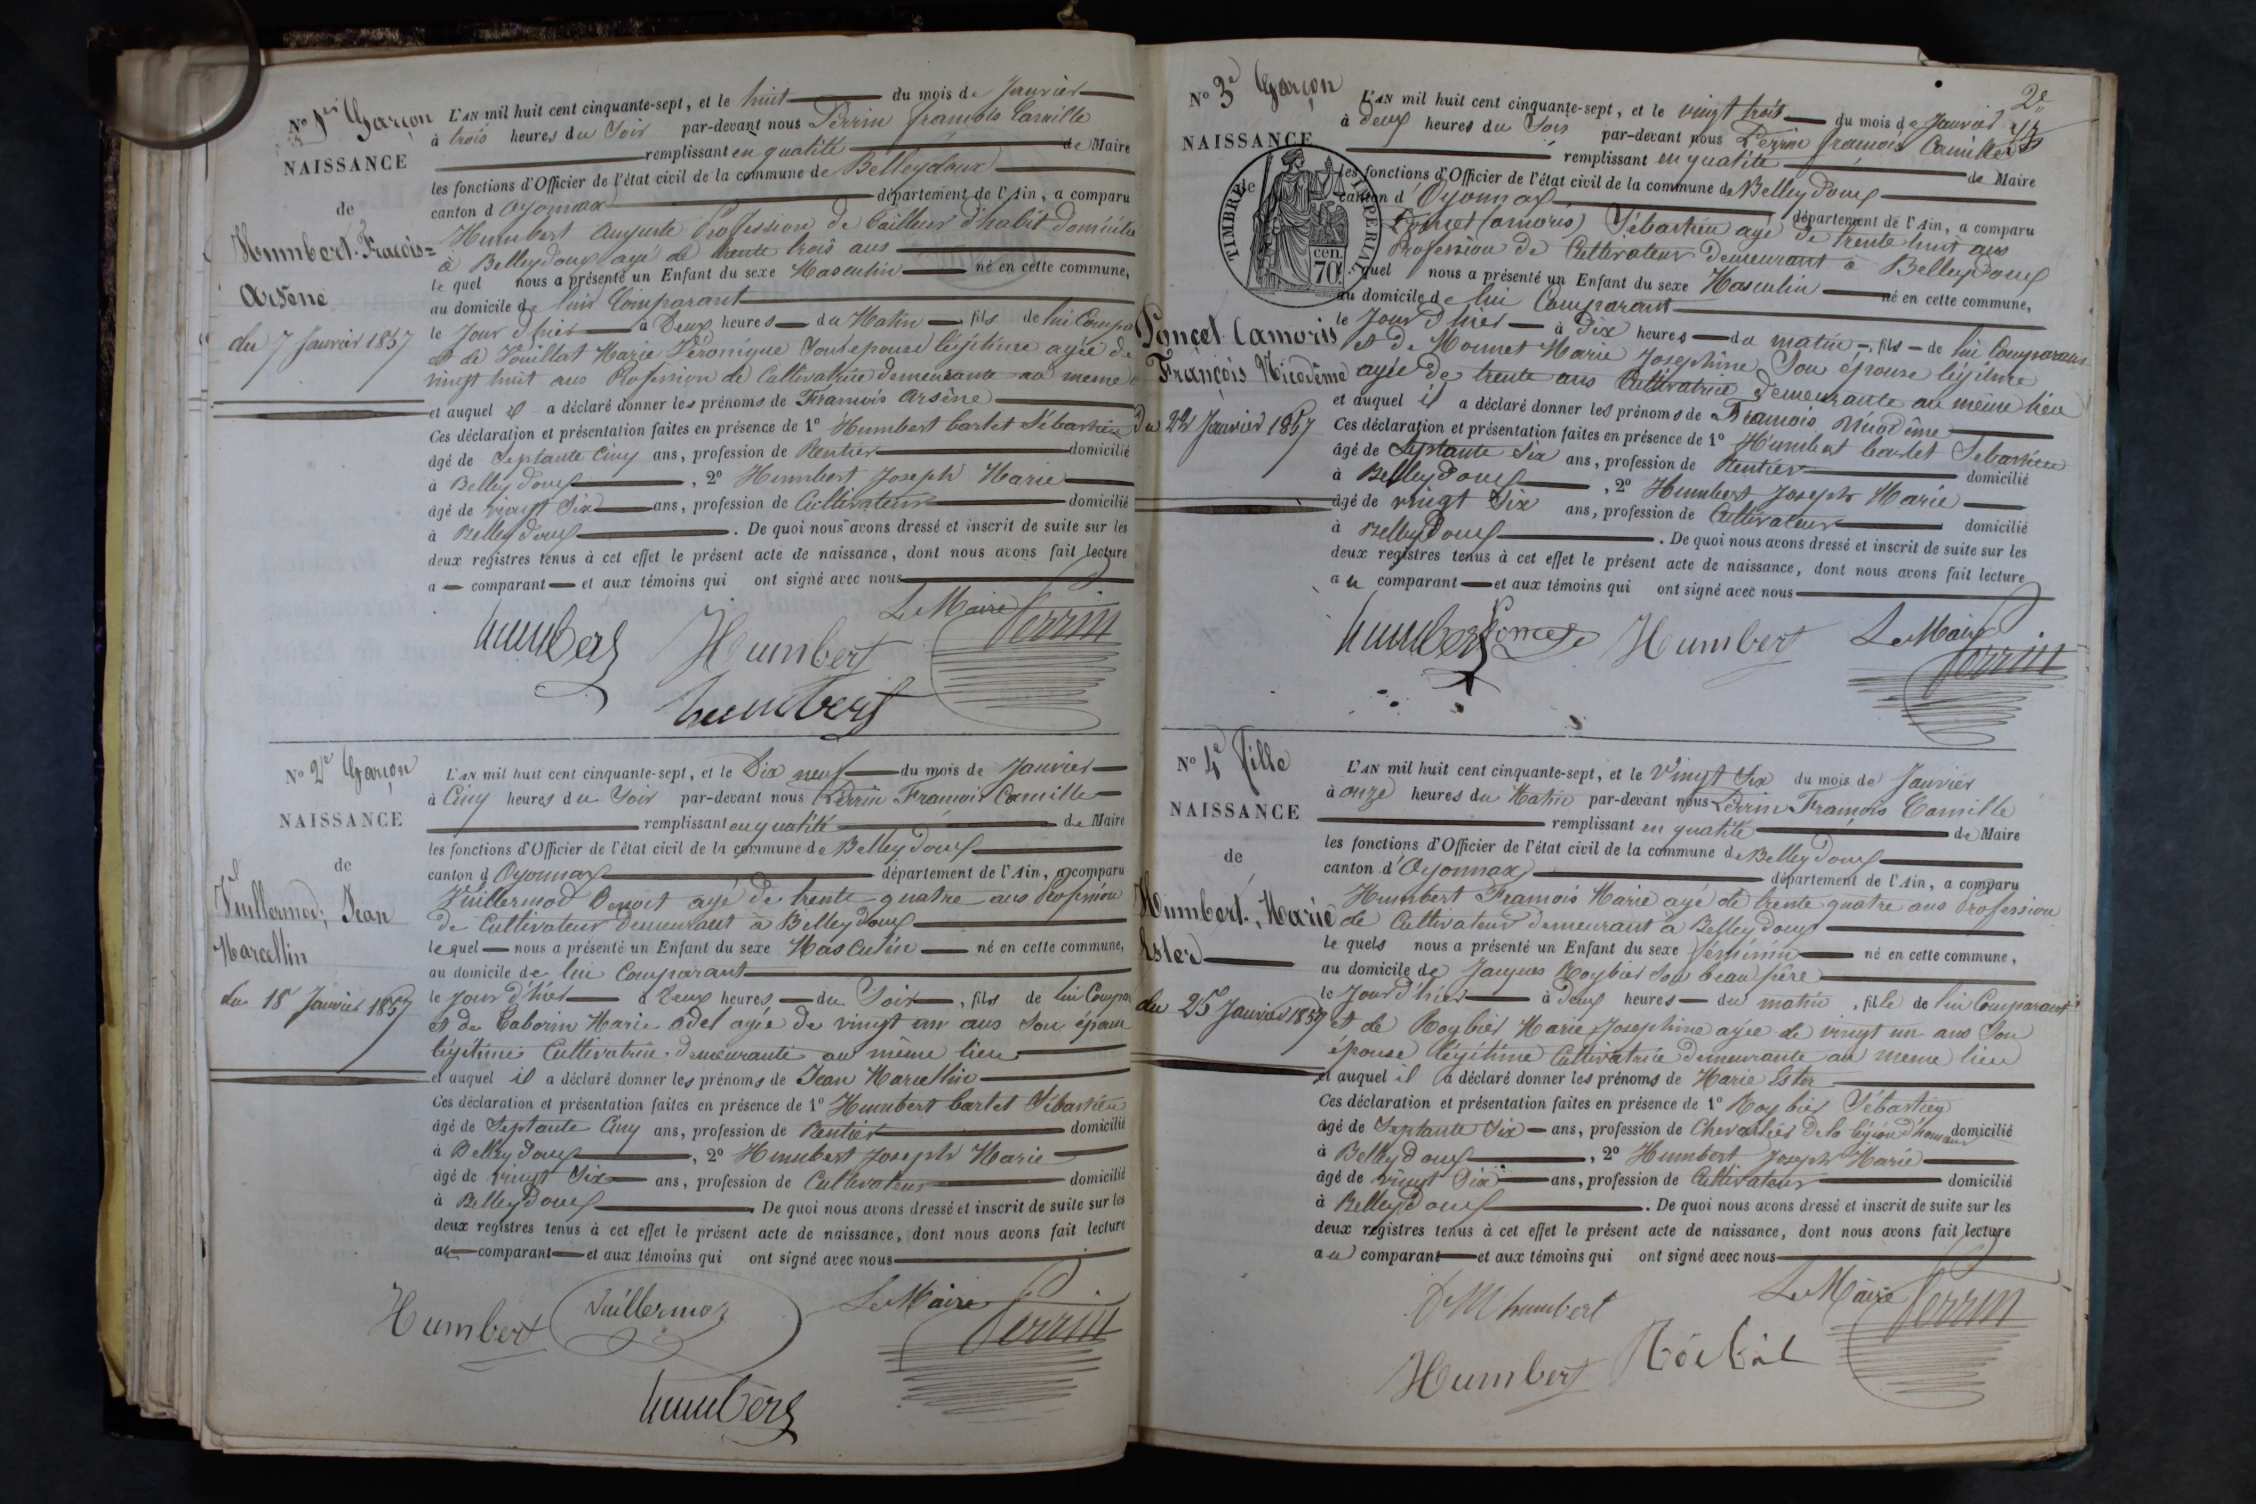 No 1er Garçon
NAISSANCE
de
Humbert Fracois=
Arsène
du 7 Janvier 1857
L'AN mil huit cent cinquante-sept, et le huit du mois de Janvier
à trois heures du Soir par-devant nous Perrin françois Camille
remplissant en qualité de Maire
les fonctions d'Officier de l'état civil de la commune de Belleydoux
canton d Oyonnax département de l'Ain, a comparu
Humbert Auguste Profession de tailleur d'habit domicilié
à Belleydoux agé de trente trois ans
le quel nous a présenté un Enfant du sexe Masculin né en cette commune,
au domicile de luis Comparant
le Jour d'hier à Deux heures du Matin, fils de lui Compa
et de Vouillat Marie Véronique Son epouse légitime agée de
vingt huit ans Profession de Cultivatrice demeurante au meme
et auquel il a déclaré donner les prénoms de François Arsène
Ces déclaration et présentation faites en présence de 1º Humbert bartet Sébastien
âgé de Septante Cinq ans, profession de Rentier domicilié
à Belleydoux, 2º Humbert Joseph Marie
âgé de vingt Six ans, profession de Cultivateur domicilié
à Belleydoux. De quoi nous avons dressé et inscrit de suite sur les
deux registres tenus à cet effet le présent acte de naissance, dont nous avons fait lecture
a comparant et aux témoins qui ont signé avec nous
Le Maire
humbert Humbert Perrin
humbert
No 2e Garçon
NAISSANCE
de
Vuillermod, Jean
Marcellin
du 18 Janvier 1857
L'AN mil huit cent cinquante-sept, et le Dix neuf du mois de Janvier
à Cinq heures du Soir par-devant nous Perrin François Camille
remplissant en qualité de Maire
les fonctions d'Officier de l'état civil de la commune de Belleydoux
canton d Oyonnax département de l'Ain, a comparu
Vuillermod Benoit agé de trente quatre ans Profession
de Cultivateur demeurant à Belleydoux
le quel nous a présenté un Enfant du sexe Masculin né en cette commune,
au domicile de lui Comparant
le Jour d'hier à Deux heures du Soir, fils de lui Compar
et de Taborin Marie adel agée de vingt un ans Son épouse
légitime Cultivatrice demeurante au même lieu
et auquel il a déclaré donner les prénoms de Jean Marcellin
Ces déclaration et présentation faites en présence de 1º Humbert bartet Sébastien
âgé de Septante Cinq ans, profession de Rentier domicilié
à Belleydoux, 2º Humbert Joseph Marie
âgé de vingt Six ans, profession de Cultivateur domicilié
à Belleydoux. De quoi nous avons dressé et inscrit de suite sur les
deux registres tenus à cet effet le présent acte de naissance, dont nous avons fait lecture
au comparant et aux témoins qui ont signé avec nous
Humbert Vuillermoz Le Maire Perrin
humbert
2e
No 3e Garçon
NAISSANCE
de
TIMBRE IMPERIAL
70 cen.
Poncet Camoris
François Nicodême
Du 22 Janvier 1857
L'AN mil huit cent cinquante-sept, et le vingt trois du mois de Janvier
à deux heures du Soir par-devant nous Perrin françois Camille
remplissant en qualité de Maire
les fonctions d'Officier de l'état civil de la commune de Belleydoux
canton d'Oyonnax département de l'Ain, a comparu
Poncet (amoris) Sébastien agé de trente huit ans
Profession de Cultivateur demeurant à Belleydoux
quel nous a présenté un Enfant du sexe Masculin né en cette commune,
au domicile de lui Comparant
le Jour d'hier à Dix heures du matin, fils de lui Comparans
et de Monnet Marie Josephine Son épouse légitime
agée de trente ans Cultivatrice demeurante au même lieu
et auquel il a déclaré donner les prénoms de François Nicodême
Ces déclaration et présentation faites en présence de 1º Humbert bartet Sebastien
âgé de Septante Six ans, profession de Rentier domicilié
à Belleydoux, 2º Humbert Joseph Marie
âgé de vingt Six ans, profession de Cultivateur domicilié
à Belleydoux. De quoi nous avons dressé et inscrit de suite sur les
deux registres tenus à cet effet le présent acte de naissance, dont nous avons fait lecture
au comparant et aux témoins qui ont signé avec nous
humbert Poncet Humbert Le Maire
Perrin
No 4e Fille
NAISSANCE
de
Humbert, Marie
Ester
du 25 Janvier 1857
L'AN mil huit cent cinquante-sept, et le Vingt Six du mois de Janvier
à onze heures du Matin par-devant nous Perrin François Camille
remplissant en qualité de Maire
les fonctions d'Officier de l'état civil de la commune de Belleydoux
canton d'Oyonnax département de l'Ain, a comparu
Humbert François Marie agé de trente quatre ans Profession
de Cultivateur demeurant à Belleydoux
le quels nous a présenté un Enfant du sexe féminin né en cette commune,
au domicile de Jacques Roybier Son beau père
le Jour d'hier à deux heures du matin, fille de lui Comparant
et de Roybier Marie Josephine agée de vingt un ans Son
épouse légitime Cultivatrice demeurante au meme lieu
et auquel il a déclaré donner les prénoms de Marie Ester
Ces déclaration et présentation faites en présence de 1º Roybier Sébastien
âgé de Septante Six ans, profession de Chevalier de la légion d'honneur domicilié
à Belleydoux, 2º Humbert Joseph Marie
âgé de vingt Six ans, profession de Cultivateur domicilié
à Belleydoux. De quoi nous avons dressé et inscrit de suite sur les
deux registres tenus à cet effet le présent acte de naissance, dont nous avons fait lecture
au comparant et aux témoins qui ont signé avec nous
humbert Le Maire Perrin
Humbert